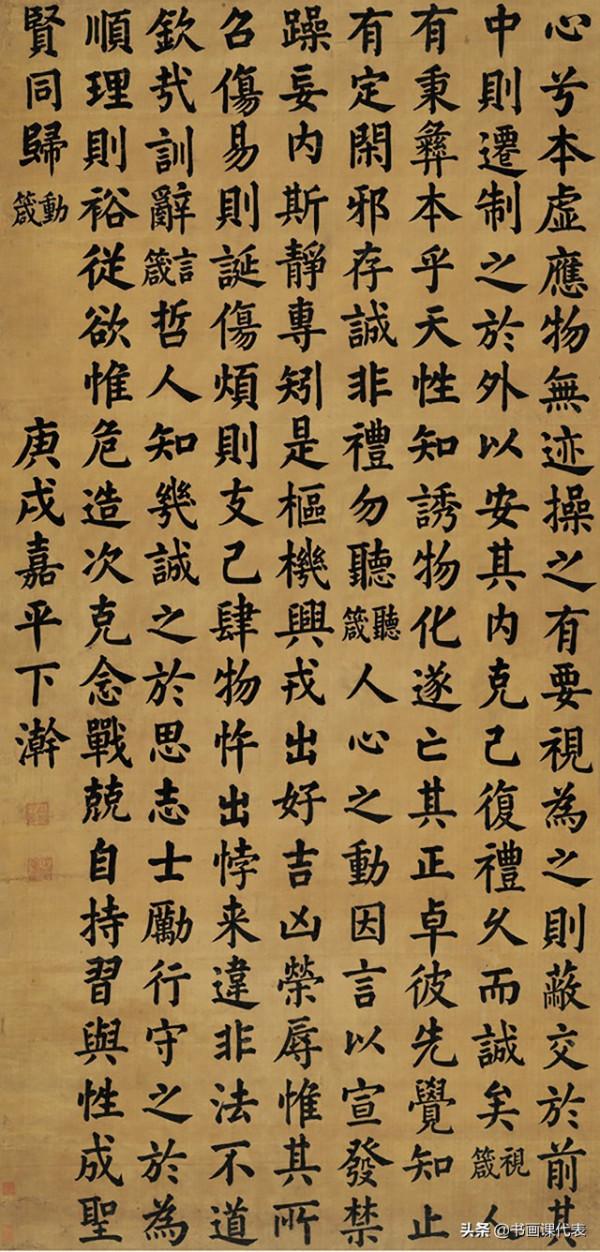 心兮本虛應物無迹操之有要視為之則蔽交於前其
中則遷制之於外以安其内克己復禮久而誠矣視箴人
有秉彝本乎天性知誘物化遂亡其正卓彼先覺知止
有定閑邪存誠非禮勿聽聽箴人心之動因言以宣發禁
躁妄内斯靜專矧是樞機興戎出好吉凶榮辱惟其所
召傷易則誕傷煩則支己肆物忤出悖来違非法不道
欽哉訓辭言箴哲人知幾誠之於思志士勵行守之於為
順理則裕從欲惟危造次克念戰兢自持習與性成聖
賢同歸動箴
庚戌嘉平下澣
头条 @书画课代表